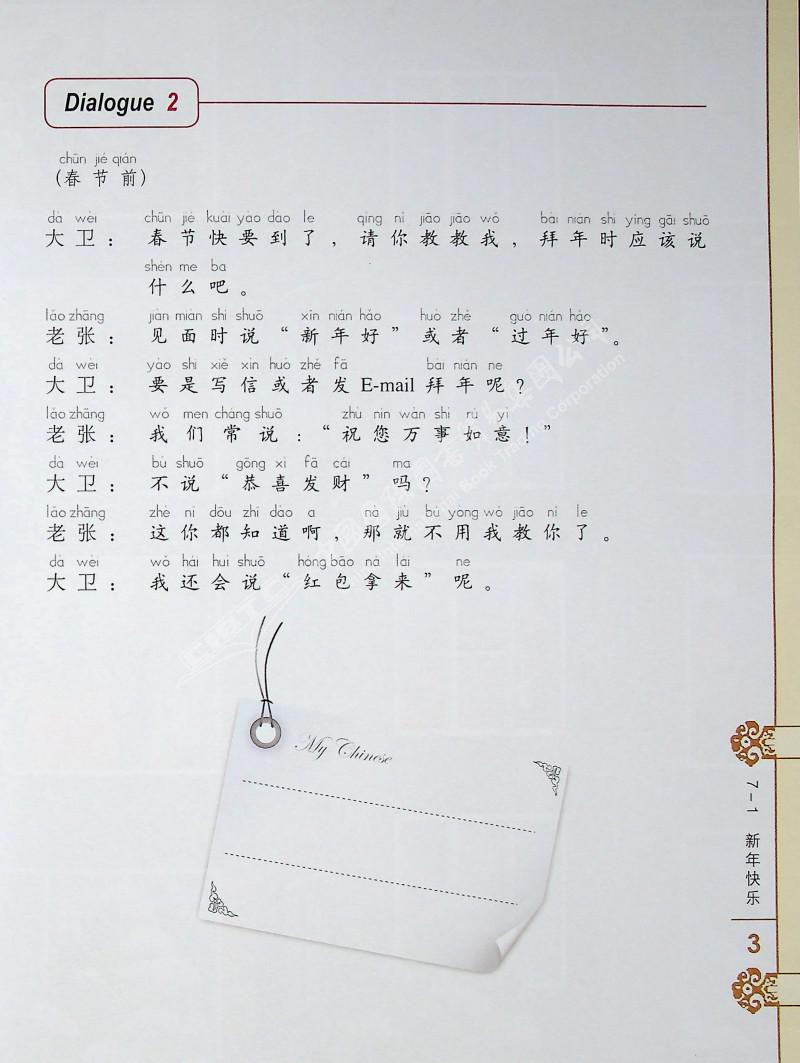 Dialogue 2
chūn jié qián
（春节前）
dà wèi chūn jié kuài yào dào le qǐng nǐ jiāo jiāo wǒ bài nián shí yīng gāi shuō
大卫：春节快要到了，请你教教我，拜年时应该说
shén me ba
什么吧。
lǎo zhāng jiàn miàn shí shuō xīn nián hǎo huò zhě guò nián hǎo
老张：见面时说“新年好”或者“过年好”。
dà wèi yào shi xiě xìn huò zhě fā bài nián ne
大卫：要是写信或者发E-mail拜年呢？
lǎo zhāng wǒ men cháng shuō zhù nín wàn shì rú yì
老张：我们常说：“祝您万事如意！”
dà wèi bù shuō gōng xǐ fā cái ma
大卫：不说“恭喜发财”吗？
lǎo zhāng zhè nǐ dōu zhī dào a nà jiù bú yòng wǒ jiāo nǐ le
老张：这你都知道啊，那就不用我教你了。
dà wèi wǒ hái huì shuō hóng bāo ná lái ne
大卫：我还会说“红包拿来”呢。
My Chinese
7-1 新年快乐
3